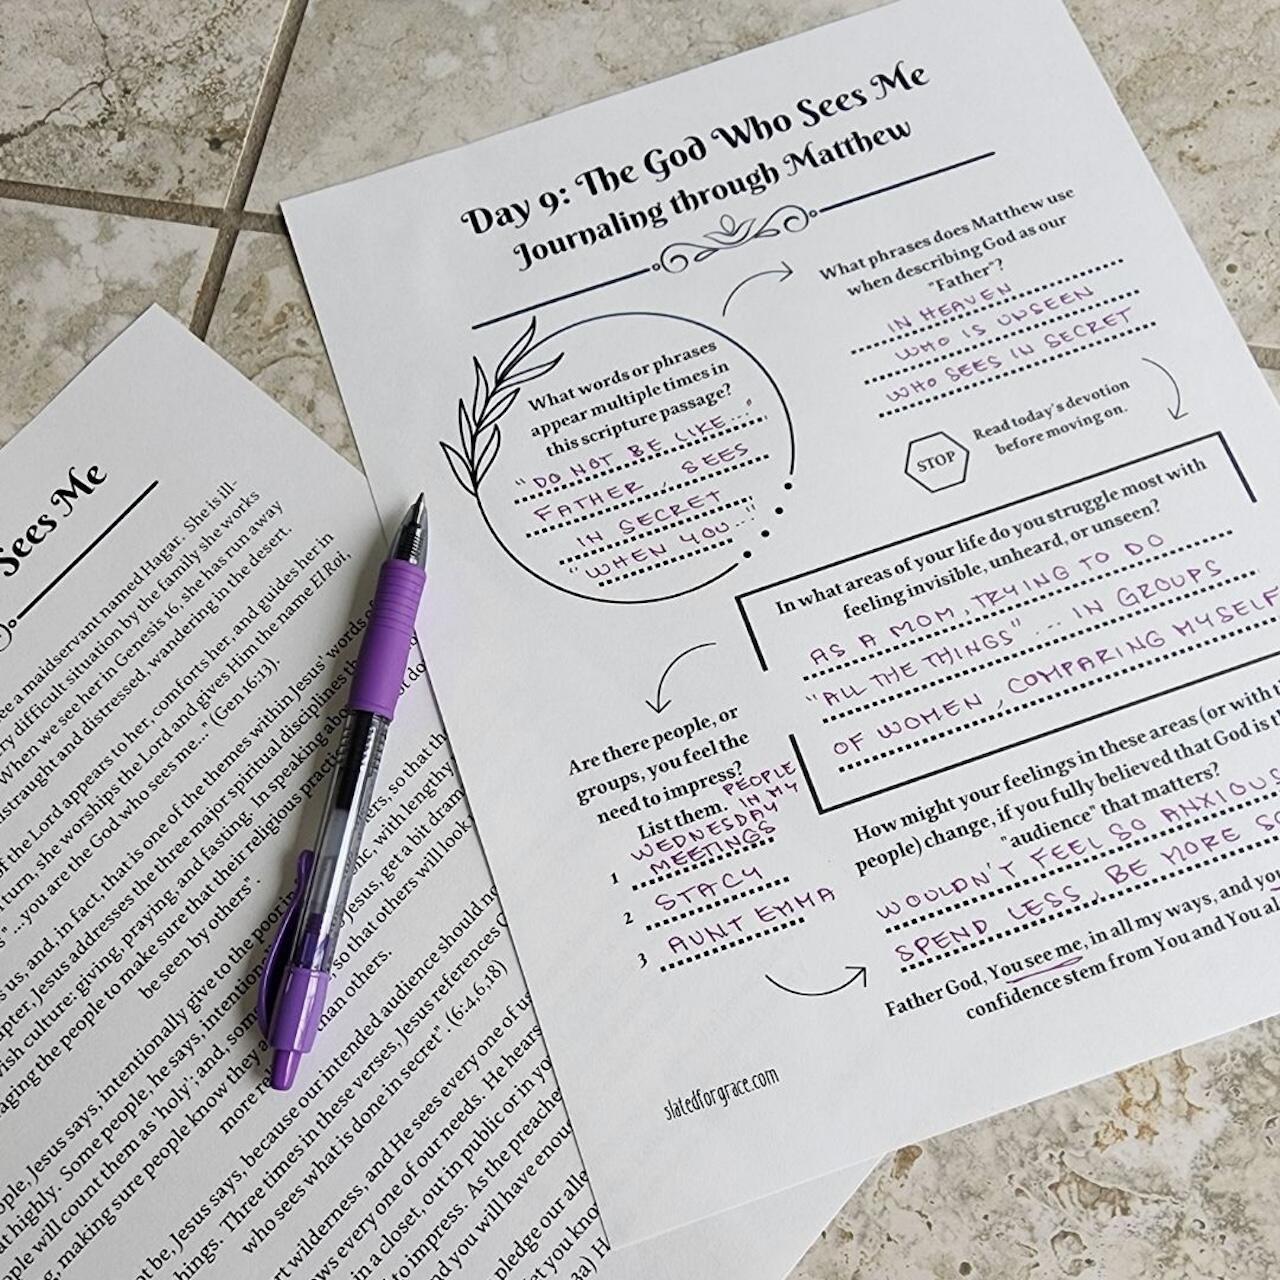 Day 9: The God Who Sees Me
Journaling through Matthew
What words or phrases
appear multiple times in
this scripture passage?
"DO NOT BE LIKE..."
FATHER, SEES
IN SECRET
"WHEN YOU..."
What phrases does Matthew use
when describing God as our
"Father"?
IN HEAVEN
WHO IS UNSEEN
WHO SEES IN SECRET
STOP
Read today's devotion
before moving on.
In what areas of your life do you struggle most with
feeling invisible, unheard, or unseen?
AS A MOM, TRYING TO DO
"ALL THE THINGS" ... IN GROUPS
OF WOMEN, COMPARING MYSELF
Are there people, or
groups, you feel the
need to impress?
List them.
1 PEOPLE
IN MY
WEDNESDAY
MEETINGS
2 STACY
3 AUNT EMMA
How might your feelings in these areas (or with
people) change, if you fully believed that God is
"audience" that matters?
WOULDN'T FEEL SO ANXIOUS
SPEND LESS, BE MORE
Father God, You see me, in all my ways, and
confidence stem from You and You
slatedforgrace.com
Sees Me
a maidservant named Hagar. She is ill-
difficult situation by the family she works
When we see her in Genesis 16, she has run away
and distressed, wandering in the desert.
of the Lord appears to her, comforts her, and guides her in
turn, she worships the Lord and gives Him the name El Roi,
"...you are the God who sees me..." (Gen 16:13).
us, and, in fact, that is one of the themes within Jesus' words
Jesus addresses the three major spiritual disciplines
culture: giving, praying, and fasting. In speaking
the people to make sure that their religious
be seen by others".
Jesus says, intentionally give to the poor in so that
highly. Some people, he says, with lengthy
will count them as 'holy'; and, Jesus, get a bit
making sure people know they so that others will look
more than others.
be, Jesus says, because our intended audience should
Three times in these verses, Jesus references
who sees what is done in secret". (6:4,6,18)
wilderness, and He sees every one of
every one of our needs. He hears
in a closet, out in public or in
to impress. As the
and you will have
pledge our
let you